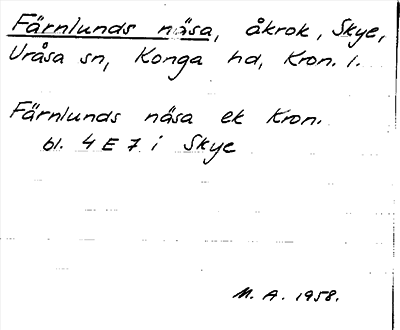 Färnlunds näsa, åkrok, Skye,
Uråsa sn, Konga hd, Kron. l.
Färnlunds näsa ek Kron.
bl. 4 E 7 i Skye
M. A. 1958.